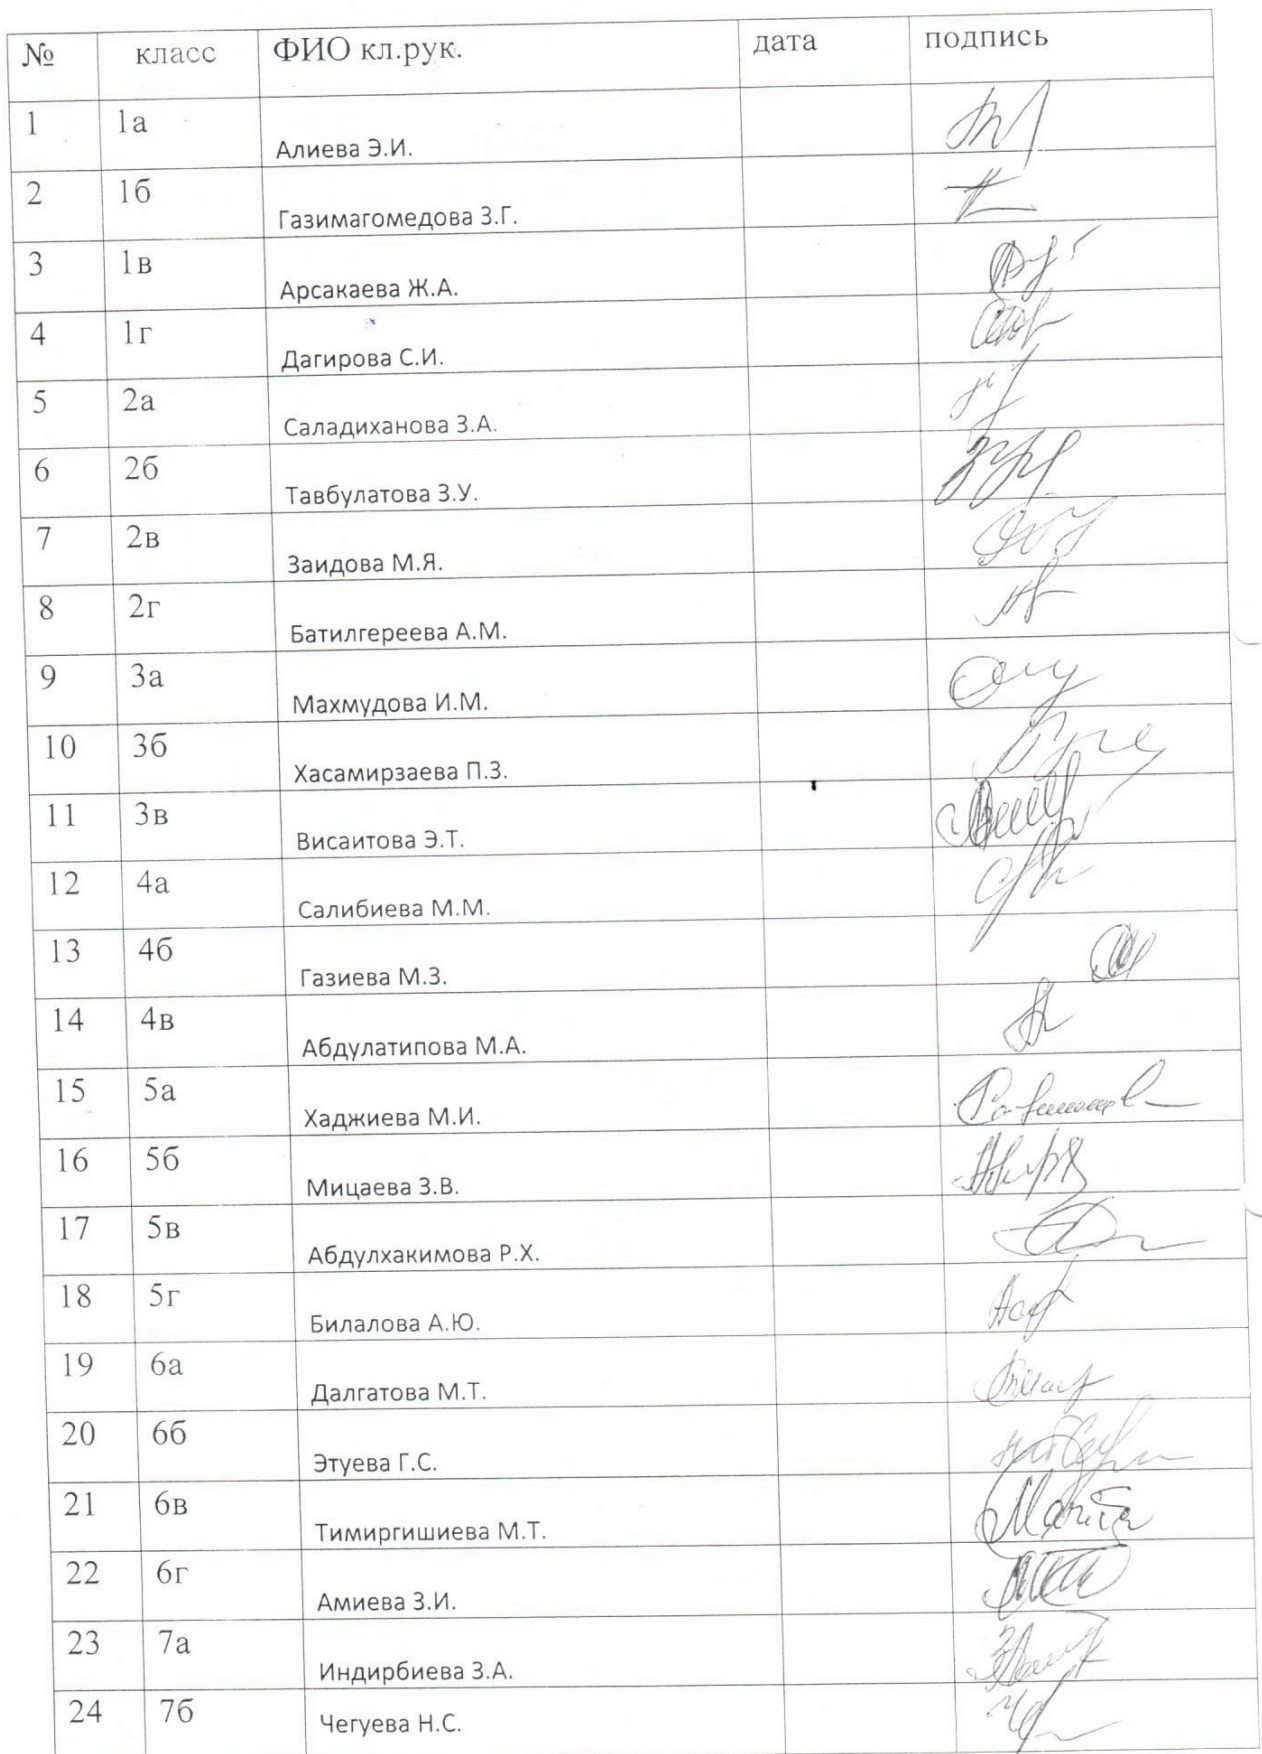 № класс ФИО кл.рук. дата подпись
1 1а Алиева Э.И.
2 1б Газимагомедова З.Г.
3 1в Арсакаева Ж.А.
4 1г Дагирова С.И.
5 2а Саладиханова З.А.
6 2б Тавбулатова З.У.
7 2в Заидова М.Я.
8 2г Батилгереева А.М.
9 3а Махмудова И.М.
10 3б Хасамирзаева П.З.
11 3в Висаитова Э.Т.
12 4а Салибиева М.М.
13 4б Газиева М.З.
14 4в Абдулатипова М.А.
15 5а Хаджиева М.И.
16 5б Мицаева З.В.
17 5в Абдулхакимова Р.Х.
18 5г Билалова А.Ю.
19 6а Далгатова М.Т.
20 6б Этуева Г.С.
21 6в Тимиргишиева М.Т.
22 6г Амиева З.И.
23 7а Индирбиева З.А.
24 7б Чегуева Н.С.